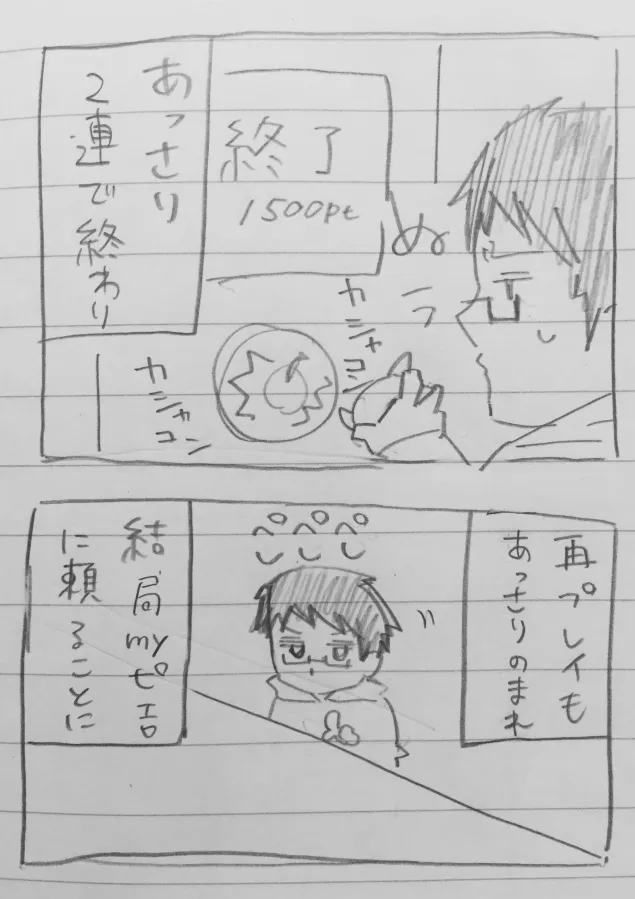 ぬ
終了
1500pt
カシャコン
カシャコン
あっさり
2連で終わり
再プレイも
あっさりのまれ
ぺしぺしぺし
結局myピエロ
に頼ることに